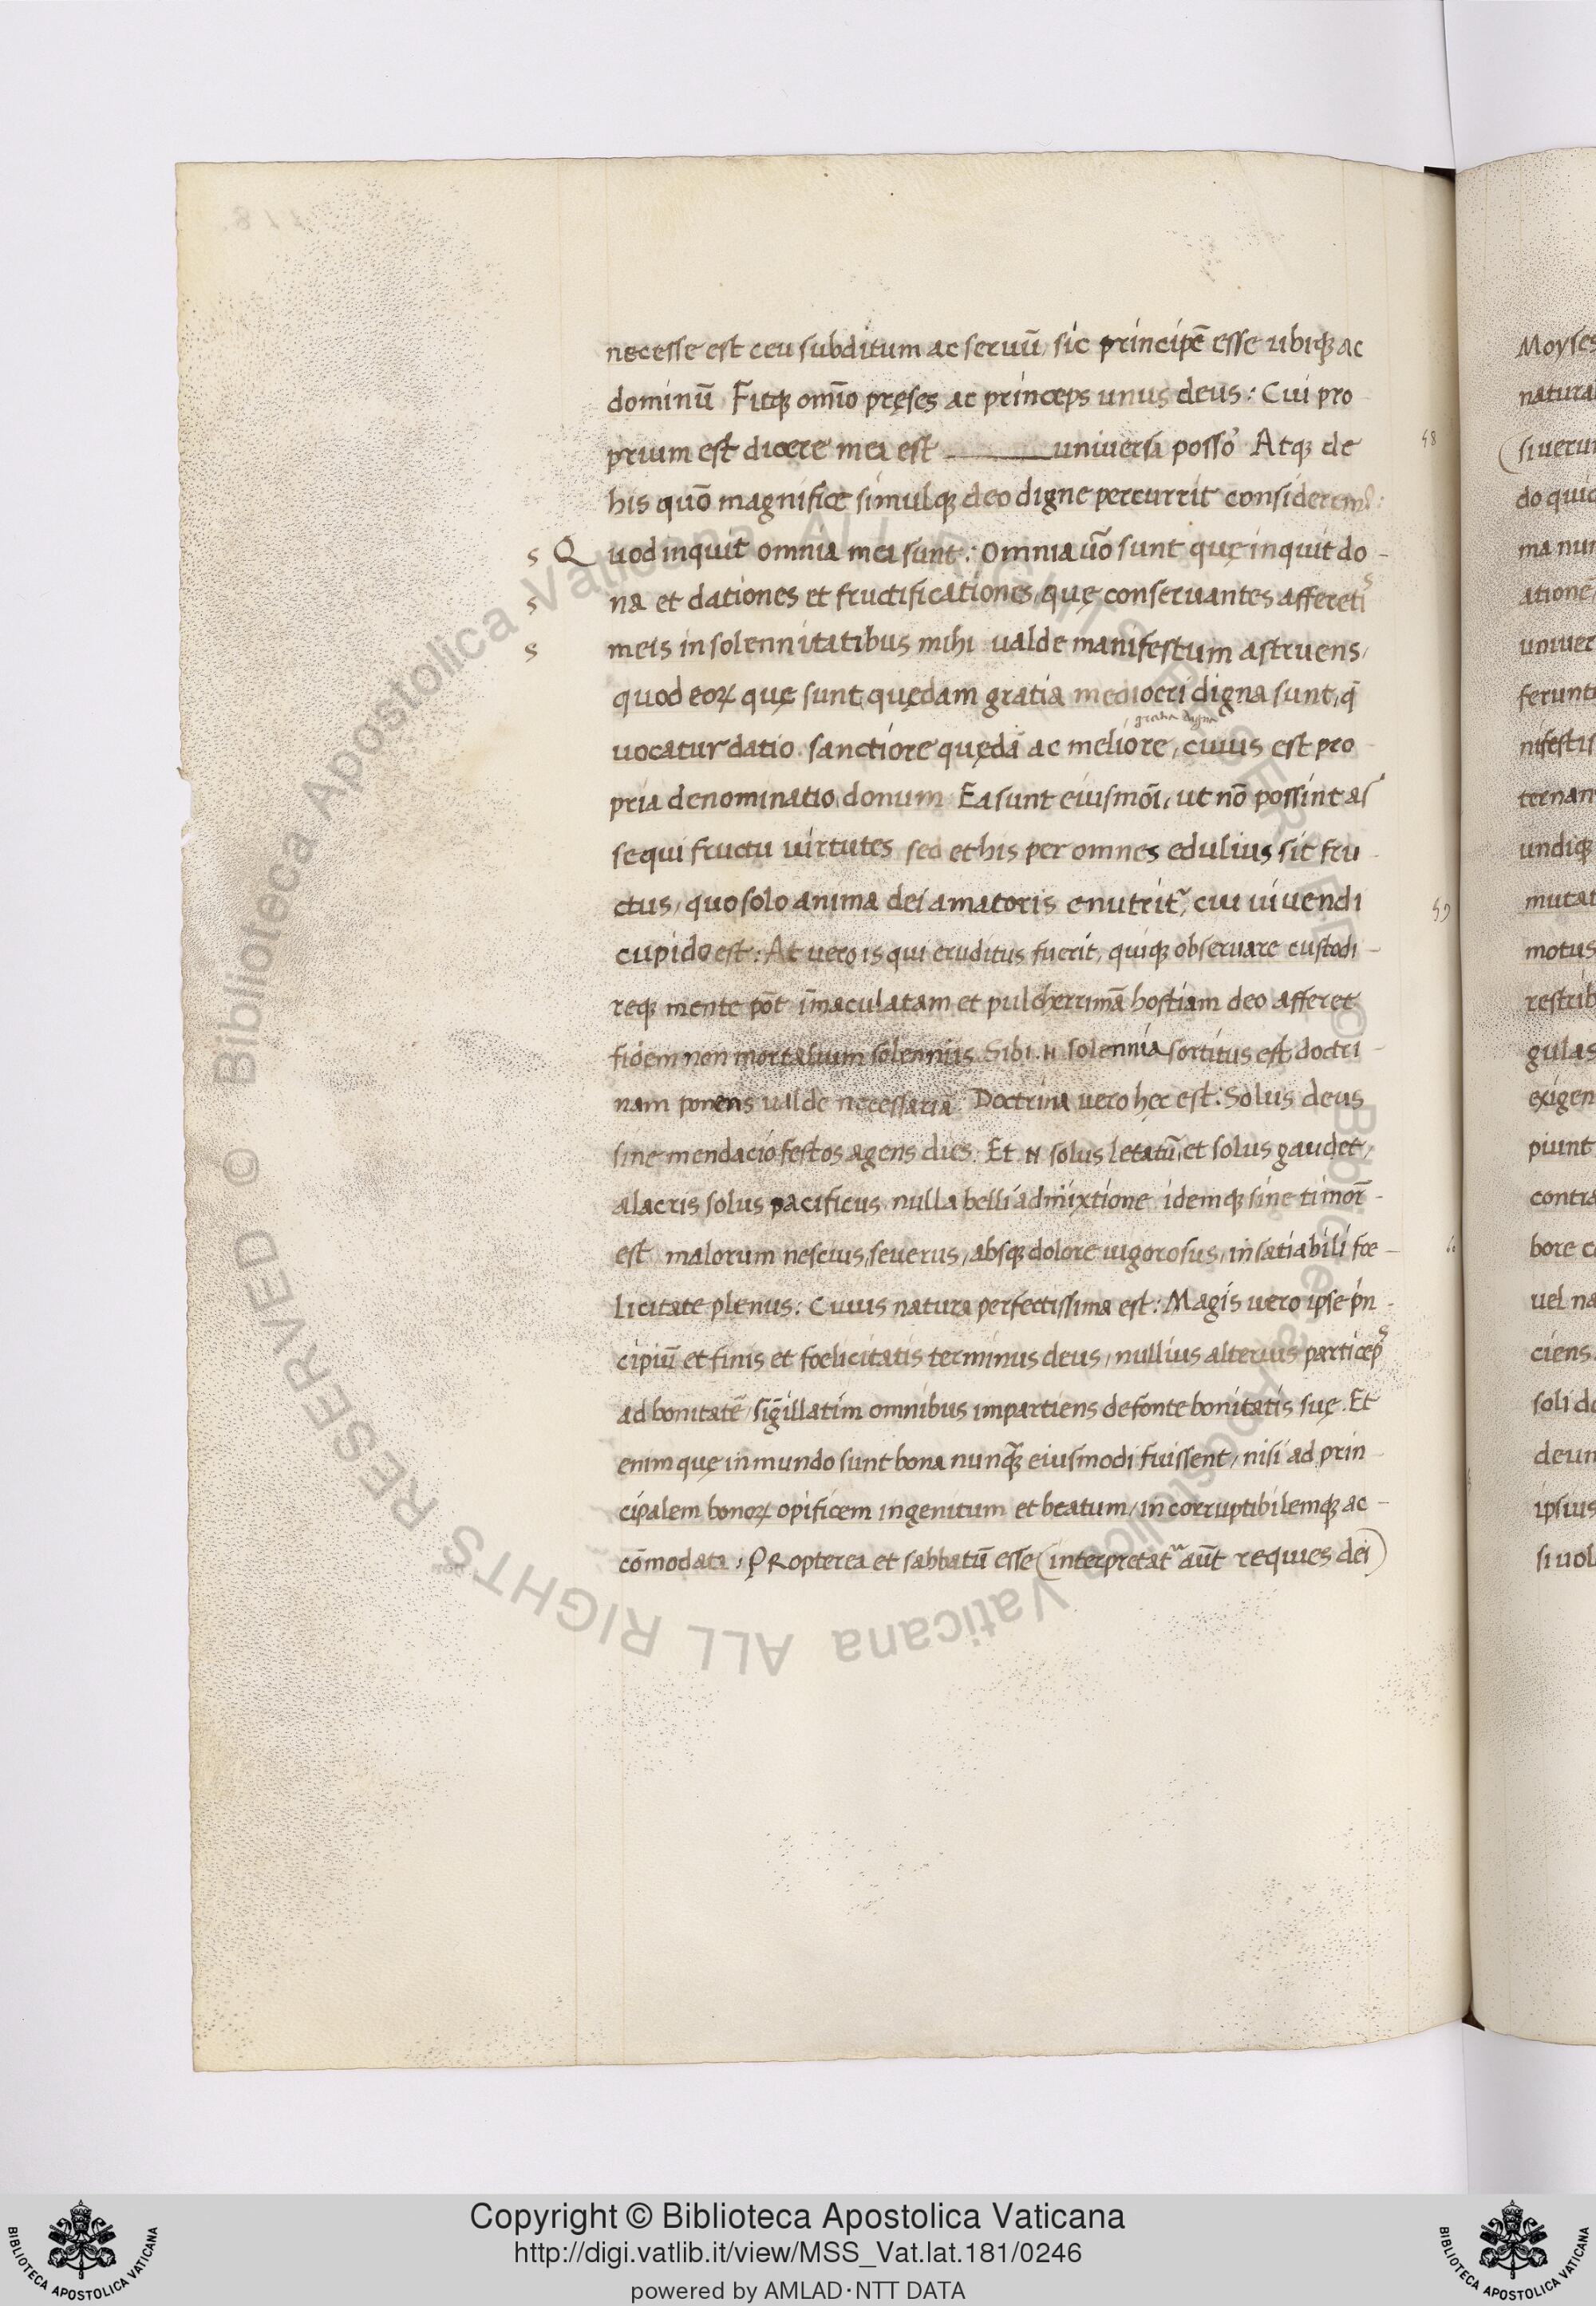 necesse est ceu subditum ac seruū, sic principē esse ubiqꝫ ac
dominū Fitqꝫ om̄io pręses ac princeps unus deus: Cui pro
prium est dicere mea est universa possō Atqꝫ de 58
his quō magnifice simulqꝫ deo digne percurrit
s Quod inquit omnia mea sunt: Omnia ūo sunt quę inquit do-
s na et dationes et fructificationes, quę conseruantes afferetis
s meis in solennitatibus mihi ualde manifestum astruens,
quod eoꝝ quę sunt, quędam gratia mediocri digna sunt, q̄
gratia digna
uocatur datio. sanctiore quędā ac meliore, cuius est pro
pria denominatio, donum Ea sunt eiusmōi, ut nō possint as
sequi fructu uirtutes sed et his per omnes edulius sit fru-
ctus, quo solo anima dei amatoris enutrit᷑, cui uiuendi 59
cupido est: At uero is qui eruditus fuerit, quiqꝫ obseruare custodi-
reqꝫ mente pōt im̄aculatam et pulcherrimā hostiam deo afferet
fidem non mortalium solenniis Sibi .N. solennia sortitus est, doctri-
nam ponens ualde necessariā. Doctrina uero hęc est: Solus deus
sine mendacio festos agens dies. Et .N. solus letatū, et solus gaudet,
alacris solus pacificus nulla belli admixtione idemqꝫ sine timor̄-
est malorum nescius, seuerus, absqꝫ dolore uigorosus, insatiabili fœ-
licitate plenus: Cuius natura perfectissima est: Magis uero ipse pn̄-
cipiū et finis et foelicitatis terminus deus, nullius alterius particeps
ad bonitatē, sigillatim omnibus impartiens de fonte bonitatis suę. Et
enim quę in mundo sunt bona nunqꝫ̄ eiusmodi fuissent, nisi ad prin-
cipalem bonoꝝ opificem ingenitum et beatum, incorruptibilemqꝫ ac-
cōmodata: PRopterea et sabbatū esse (interpretat᷑ aūt requies dei)
Moyses
natura
(si uerum
do quid
ma nun
atione,
uniuer
ferunt
nifestis
ternam
undiqꝫ
mutat
motus
restrib
gulas
exigen
piunt
contra
bore c
uel na
ciens.
soli de
deum
ipsius
si uol
© Biblioteca Apostolica Vaticana ALL RIGHTS RESERVED © Biblioteca Apostolica Vaticana ALL RIGHTS RESERVED
BIBLIOTECA APOSTOLICA VATICANA
Copyright © Biblioteca Apostolica Vaticana
http://digi.vatlib.it/view/MSS_Vat.lat.181/0246
powered by AMLAD·NTT DATA
BIBLIOTECA APOSTOLICA VATICANA